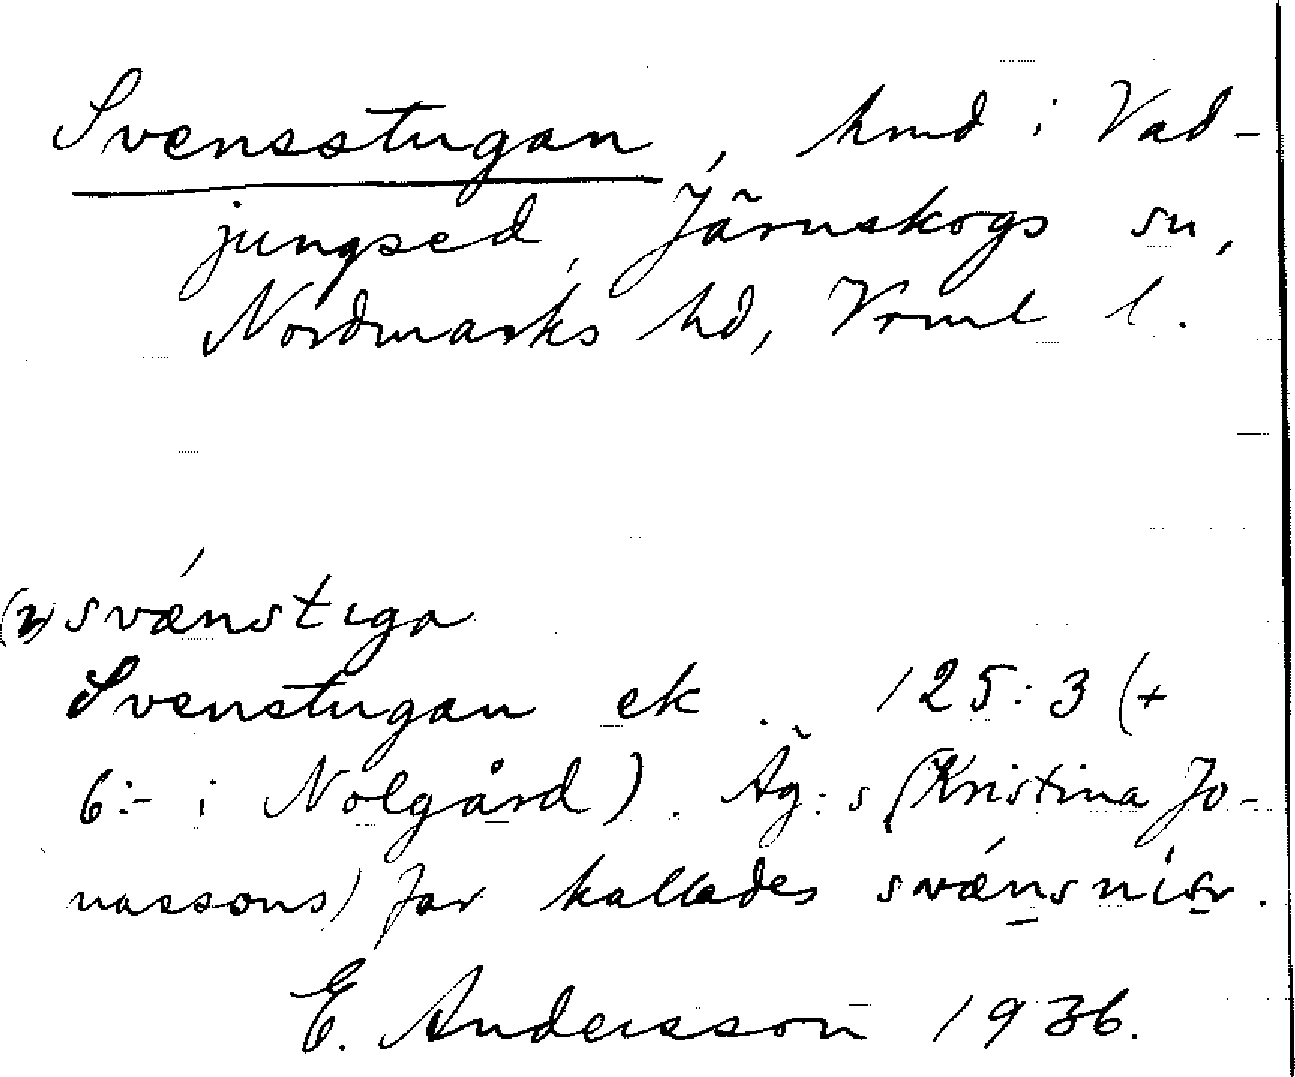 Svensstugan, hmd i Vad-
jungsed, Järnskogs sn,
Nordmarks hd, Vrml l.
(2) svǽnstɩga
Svenstugan ek. 125:3 (+
6:- i Nolgård). Äg:s (Kristina Jo-
nassons) far kallades svǽns nisr.
E. Andersson 1936.